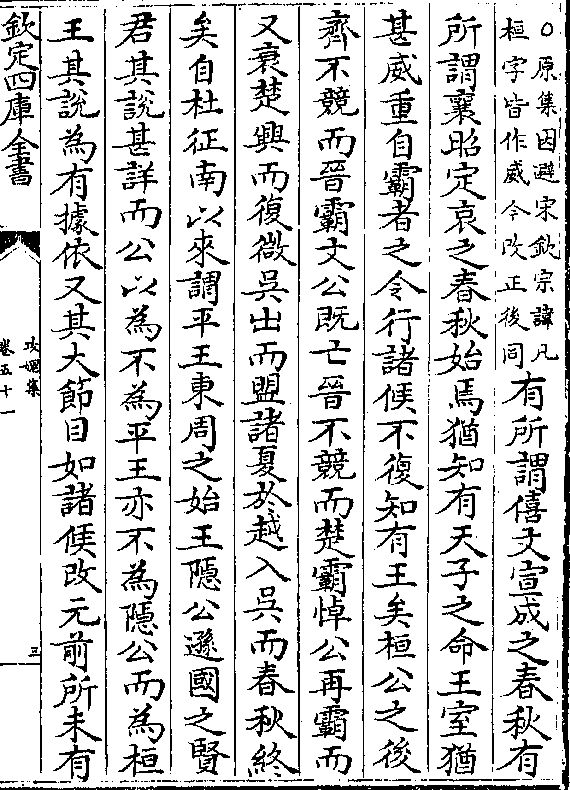 ○原集因避宋欽宗諱凡
桓字皆作威今改正後同
有所謂僖文宣成之春秋有
所謂襄昭定哀之春秋始焉猶知有天子之命王室猶
甚威重自霸者之令行諸侯不復知有王矣桓公之後
齊不競而晉霸文公既亡晉不競而楚霸悼公再霸而
又衰楚興而復微吳出而盟諸夏於越入吳而春秋終
矣自杜征南以來謂平王東周之始王隱公遜國之賢
君其說甚詳而公以為不為平王亦不為隱公而為桓
王其說為有據依又其大節目如諸侯改元前所未有
欽定四庫全書
攻媿集
卷五十一
三